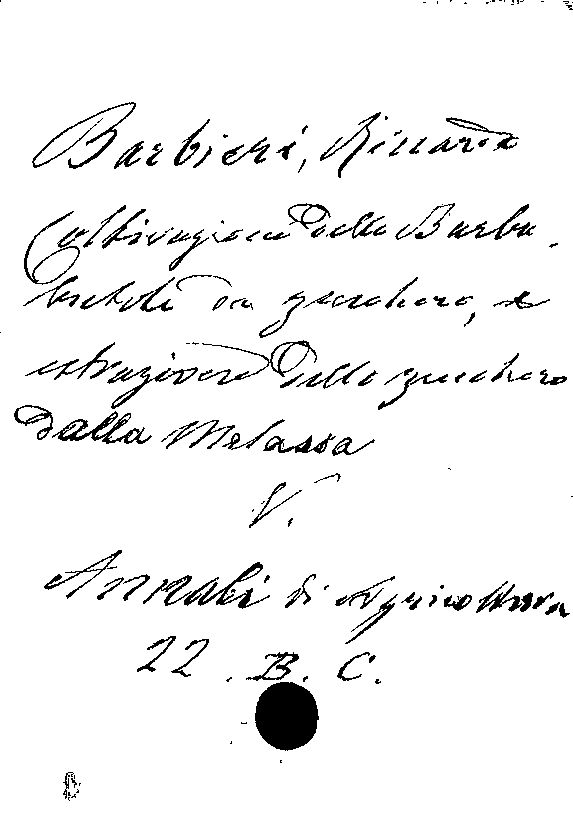 Barbieri, Riccardo
Coltivazione delle Barba-
bietole da zucchero, e
estrazione dello zucchero
dalla Melassa
V.
Annali di Agricoltura
22. B. C.